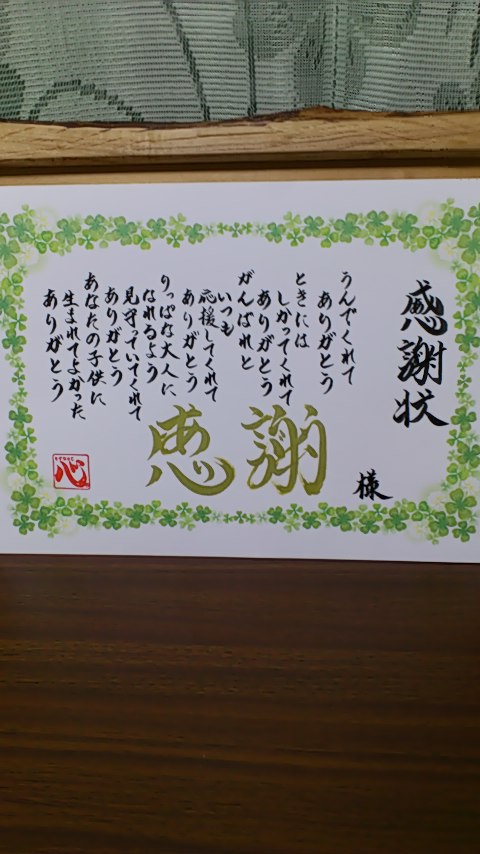 感謝状
様
うんでくれて
ありがとう
ときには
しかってくれて
ありがとう
がんばれと
いつも
応援してくれて
ありがとう
りっぱな大人に
なれるよう
見守っていてくれて
ありがとう
あなたの子供に
生まれてよかった
ありがとう
感謝
心